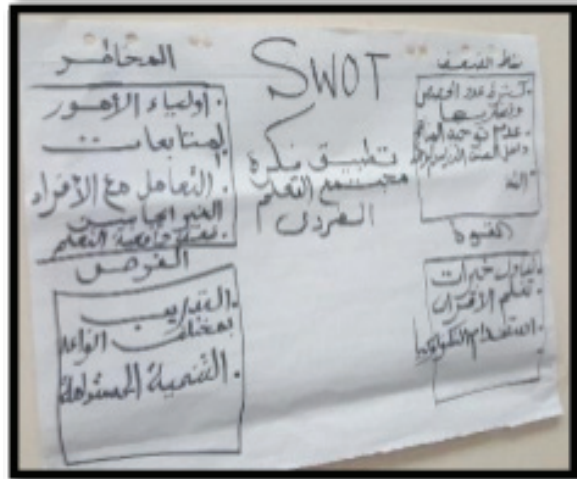 SWOT
تطبيق فكرة
مجتمع التعلم
الفردى
نقاط الضعف
كثرة عدد الحصص
عدم توحيد المناهج
القوة
تبادل خبرات
تعلم الأقران
استخدام التكنولوجيا
المخاطر
أولياء الأمور
المتابعات
التعامل مع الأفراد
الغير
التعلم
الفرص
التدريب
بمختلف أنواعه
التنمية المستدامة